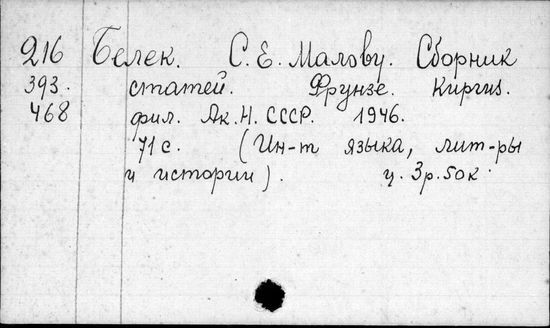 216 Белек. С. Е. Малову. Сборник
393. статей. Фрунзе. Киргиз.
468 фил. Ак. Н. СССР. 1946.
71 с. (Ин-т языка, лит-ры
и истории). ц. 3 р. 50 к.